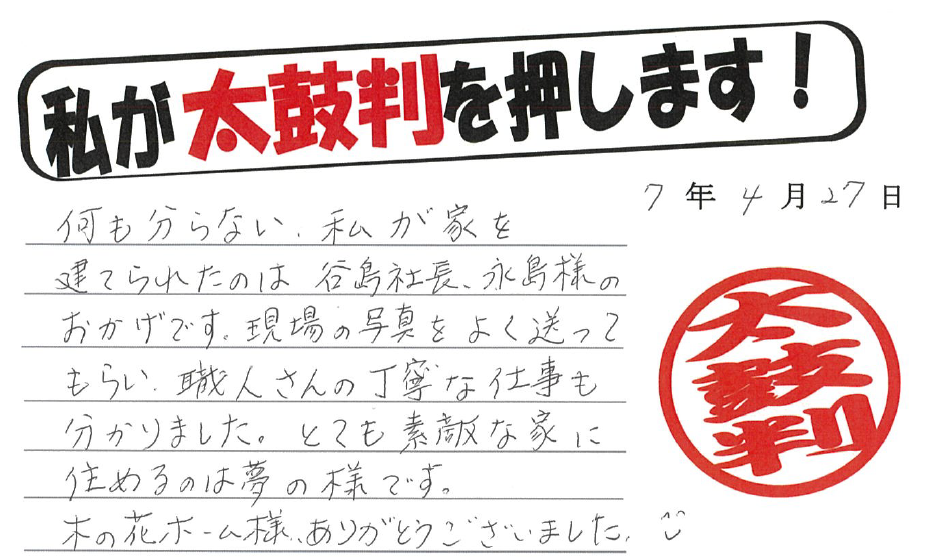 私が太鼓判を押します！
7年4月27日
何も分らない、私が家を
建てられたのは 谷島社長、永島様の
おかげです。現場の写真をよく送って
もらい、職人さんの丁寧な仕事も
分かりました。とても素敵な家に
住めるのは夢の様です。
木の花ホーム様、ありがとうございました。
太鼓判